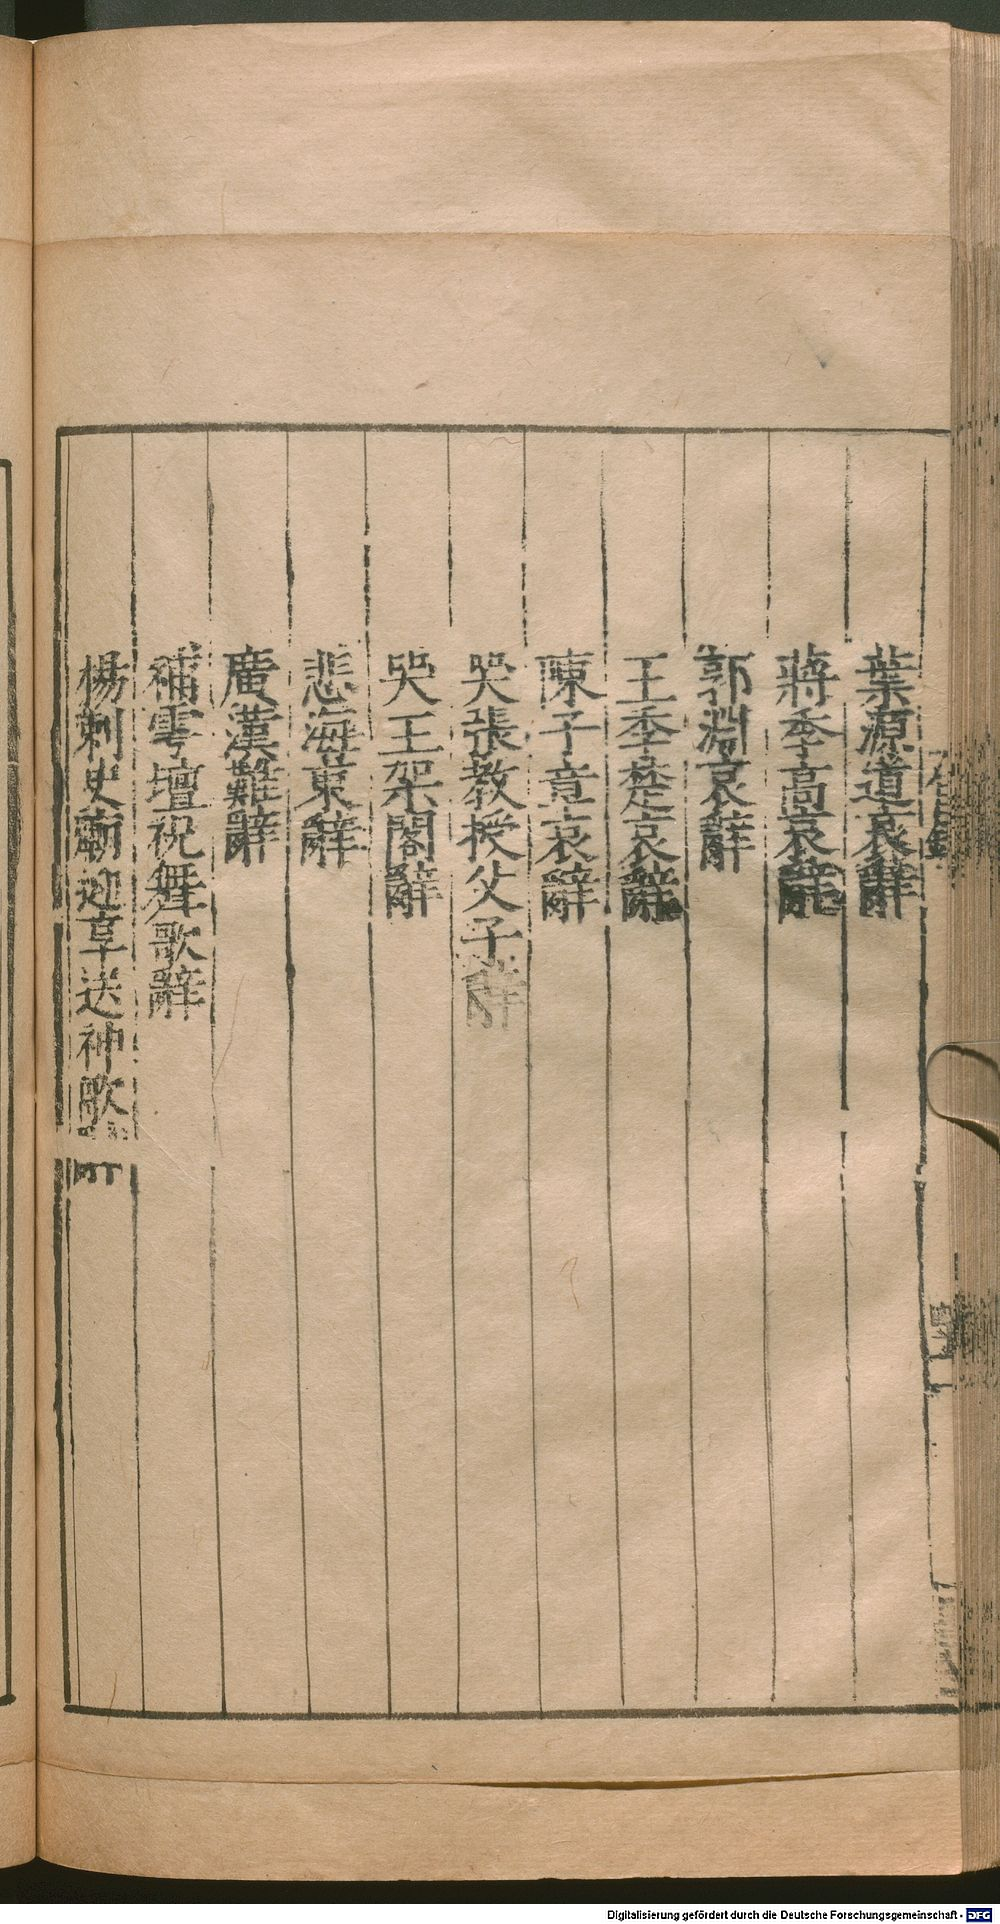 葉源道哀辭
蔣季高哀辭
郭淵哀辭
王季楚哀辭
陳子章哀辭
哭張教授父子辭
哭王架閣辭
悲海東辭
廣漢難辭
補雩壇祝舞歌辭
楊刺史廟迎享送神歌
Digitalisierung gefördert durch die Deutsche Forschungsgemeinschaft - DFG